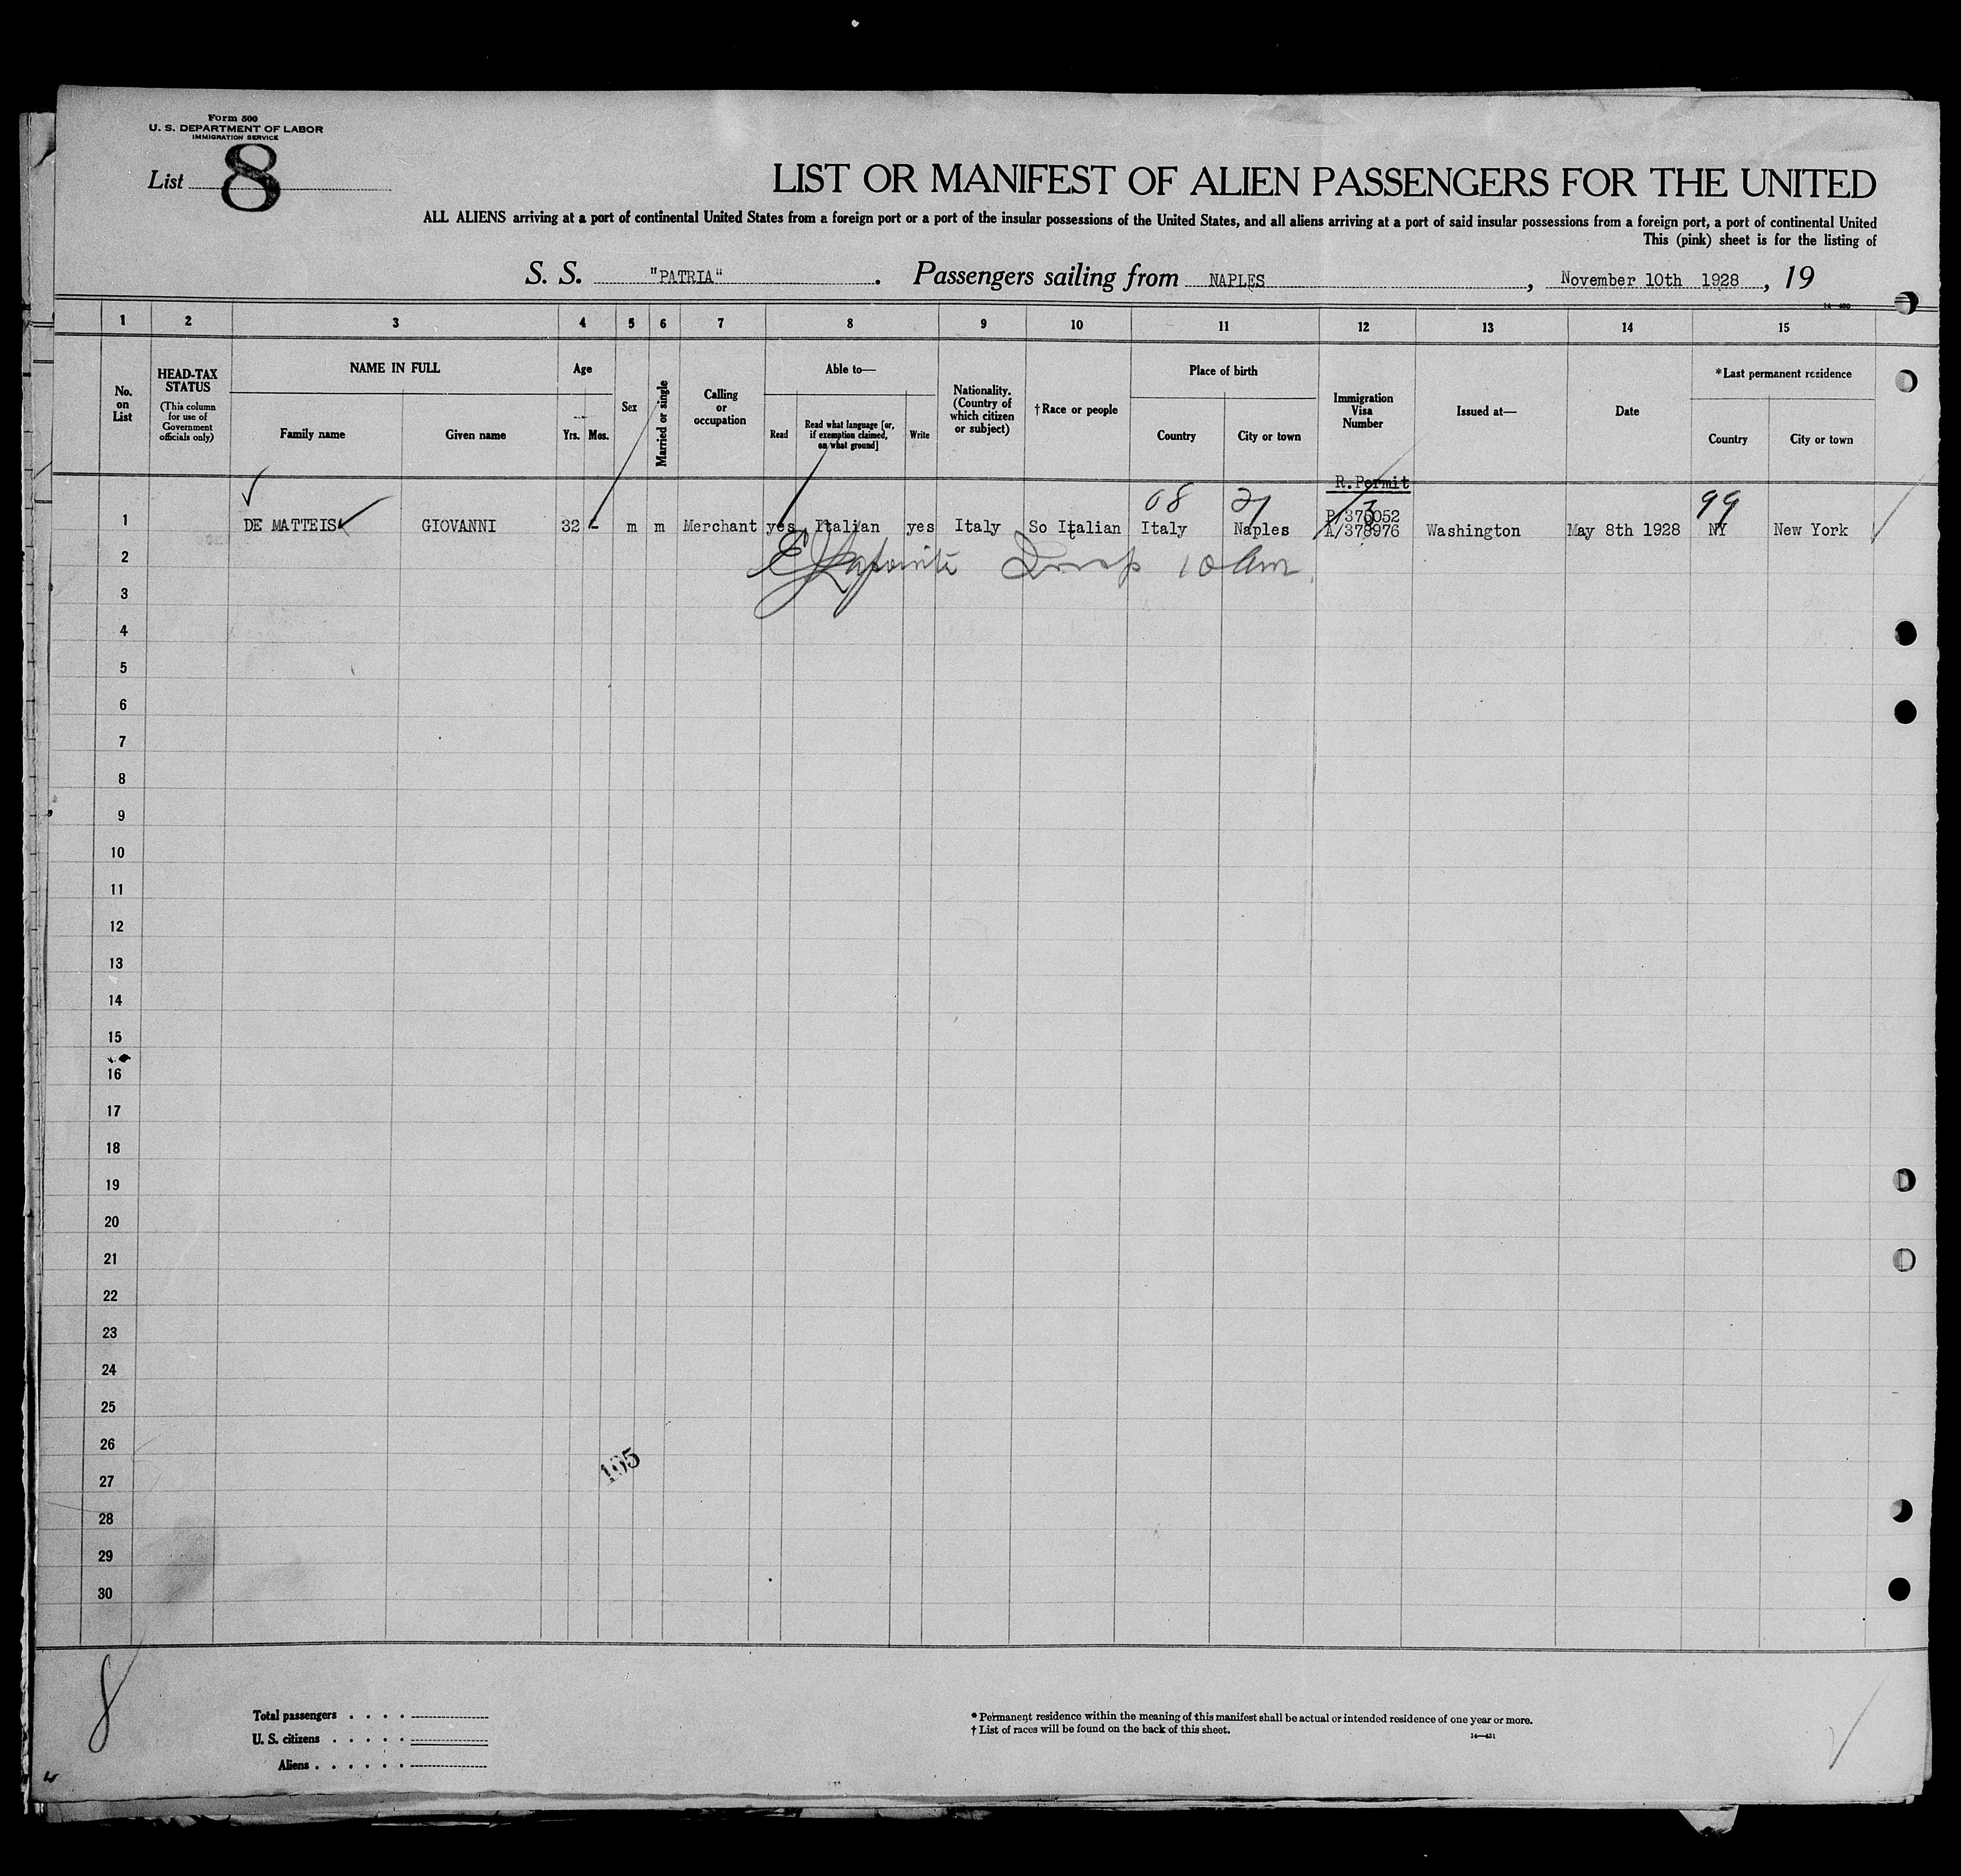 Form 500
U. S. DEPARTMENT OF LABOR
IMMIGRATION SERVICE
List 8
LIST OR MANIFEST OF ALIEN PASSENGERS FOR THE UNITED
ALL ALIENS arriving at a port of continental United States from a foreign port or a port of the insular possessions of the United States, and all aliens arriving at a port of said insular possessions from a foreign port, a port of continental United
This (pink) sheet is for the listing of
S. S. "PATRIA" . Passengers sailing from NAPLES , November 10th 1928 , 19
1 2 3 4 5 6 7 8 9 10 11 12 13 14 15
No. on List
HEAD-TAX STATUS
(This column for use of Government officials only)
NAME IN FULL
Family name
Given name
Age
Yrs. Mos.
Sex
Married or single
Calling or occupation
Able to—
Read
Read what language [or, if exemption claimed, on what ground]
Write
Nationality. (Country of which citizen or subject)
† Race or people
Place of birth
Country
City or town
Immigration Visa Number
Issued at—
Date
*Last permanent residence
Country
City or town
R. Permit
08 21 3 99
1 DE MATTEIS GIOVANNI 32 - m m Merchant yes Italian yes Italy So Italian Italy Naples A/378976 Washington May 8th 1928 NY New York
10 am
2
3
4
5
6
7
8
9
10
11
12
13
14
15
16
17
18
19
20
21
22
23
24
25
26
105
27
28
29
30
8
Total passengers . . . .
U. S. citizens . . . . .
Aliens . . . . . .
* Permanent residence within the meaning of this manifest shall be actual or intended residence of one year or more.
† List of races will be found on the back of this sheet.
14—431